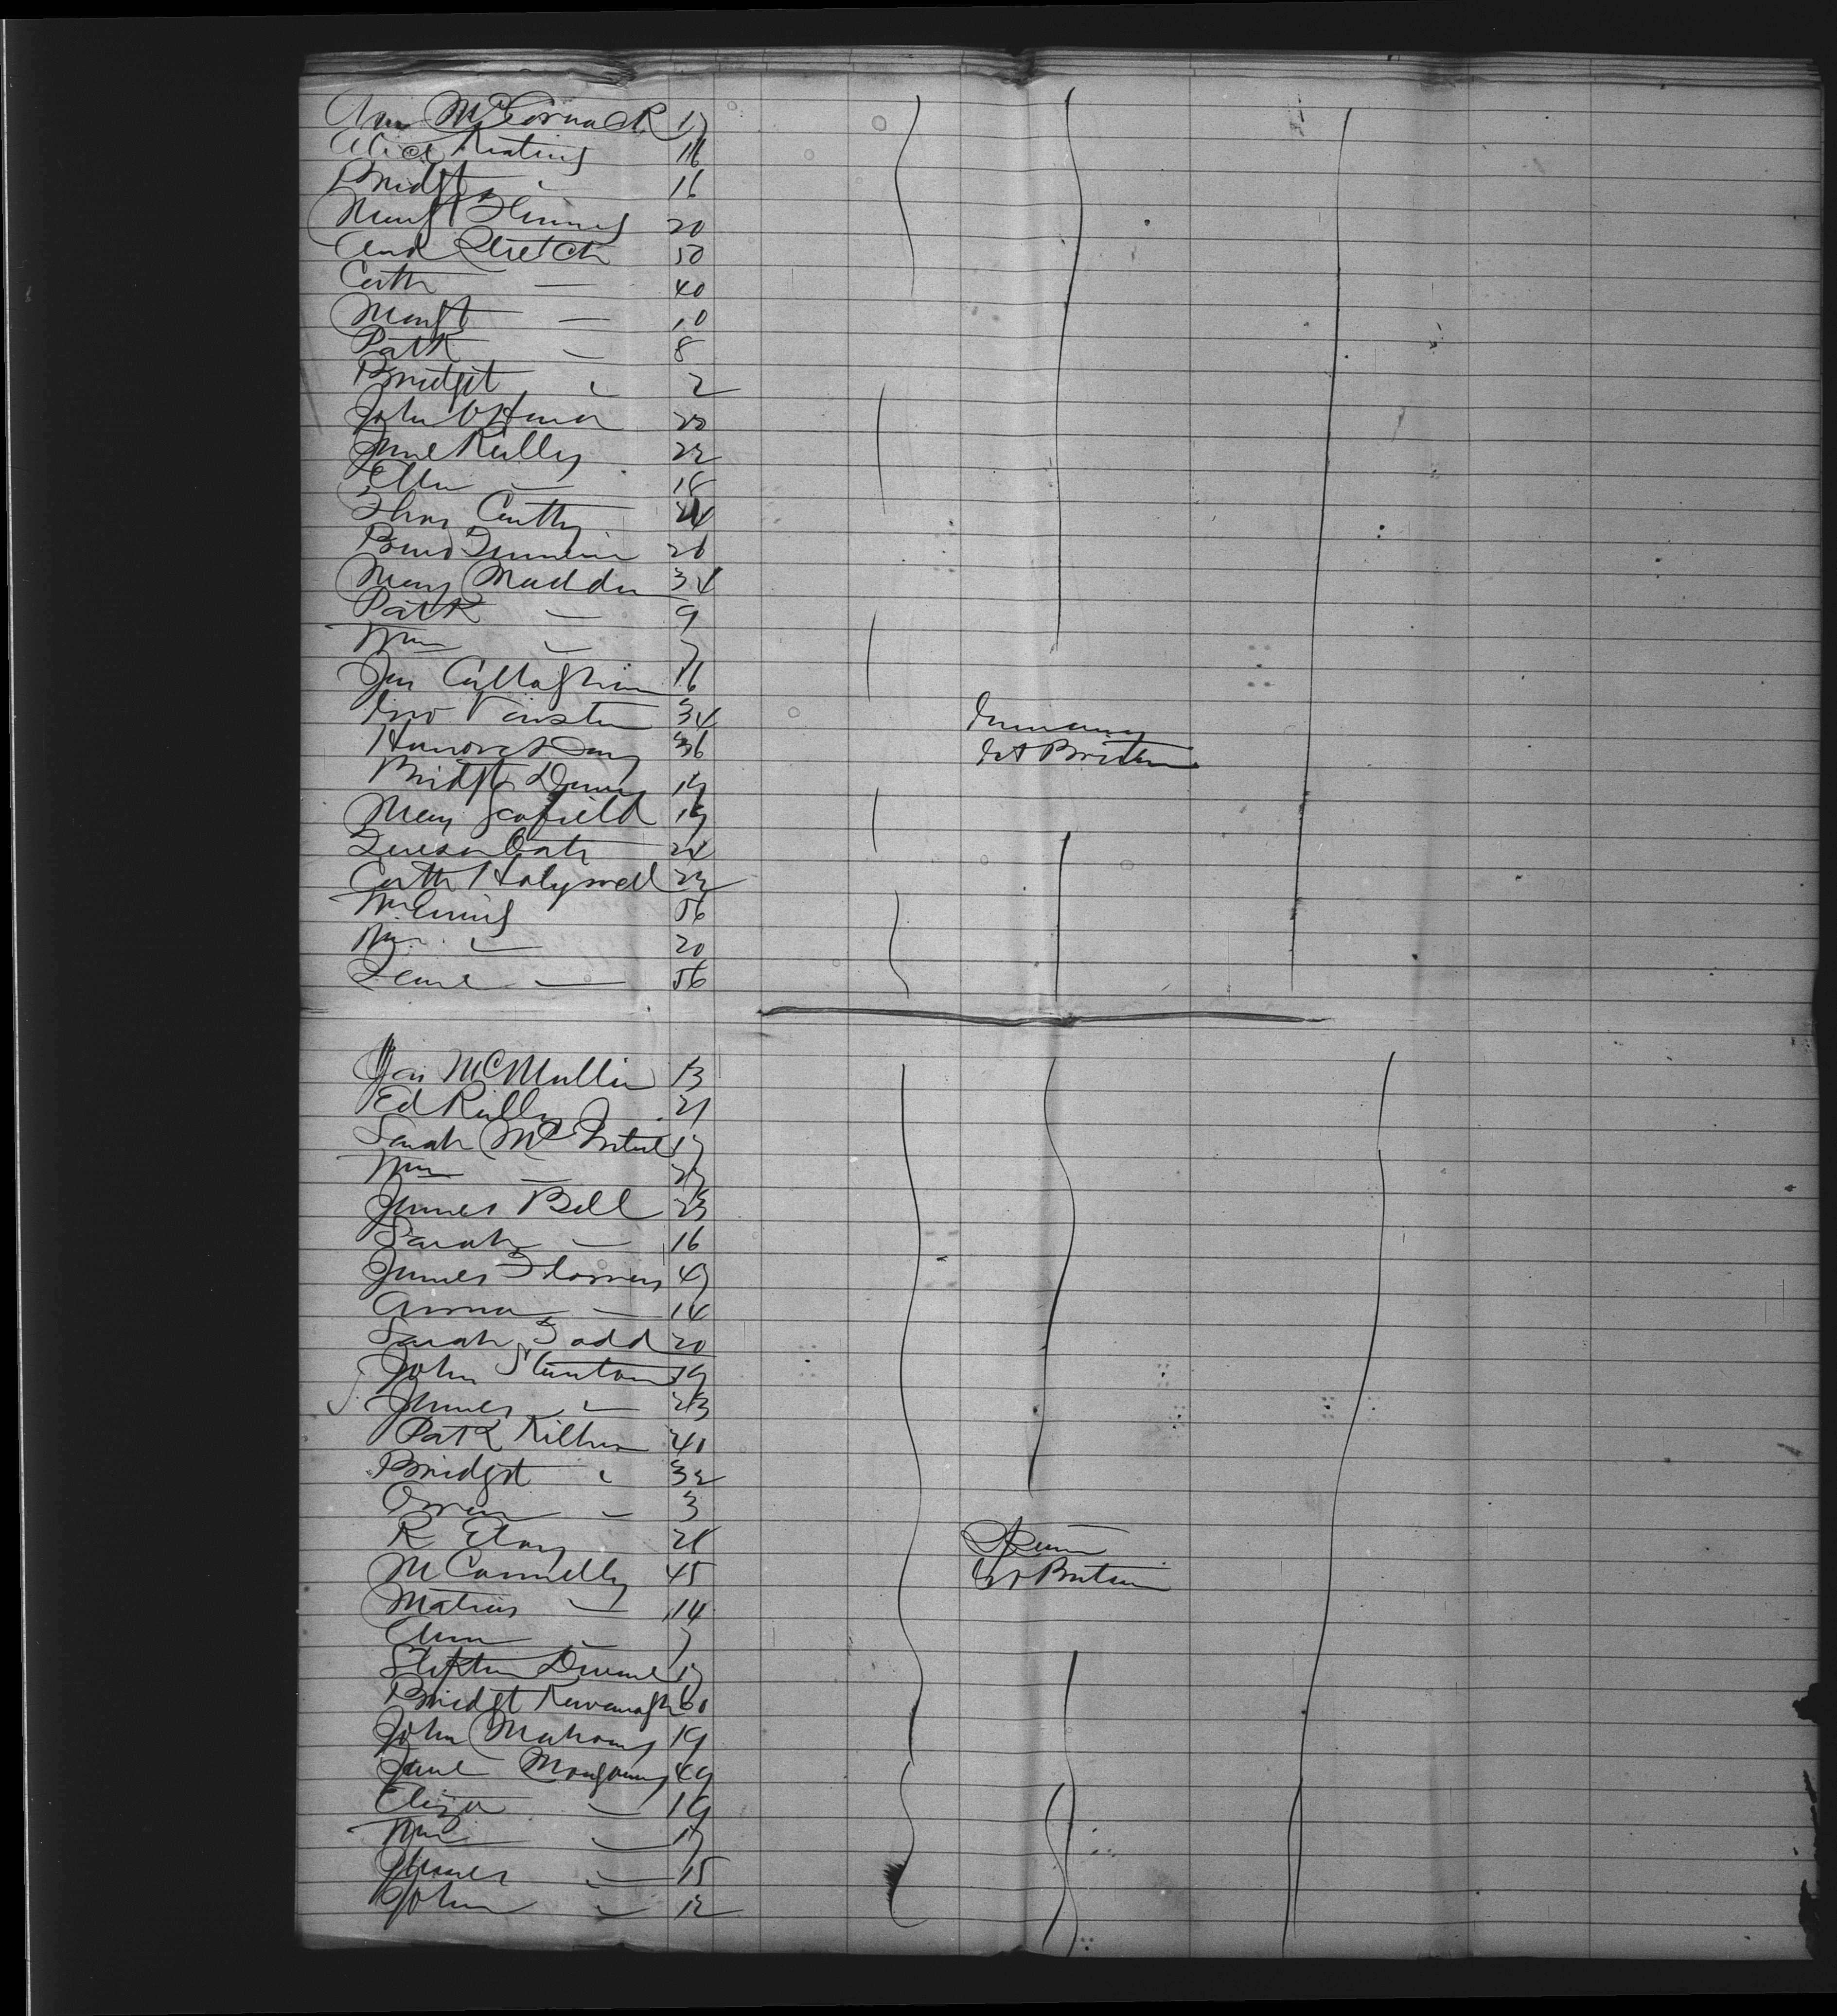 Ann McCormack 17
Alice Keating 16
Bridgt " 16
Margt 20
And Stretch 50
Cath — 40
Margt — 10
Patk — 8
Bridget " 2
John O'Hara 22
Jane Reilly 22
Ellen — 18
Thos Cartty 24
Bernd 26
Mary Madden 34
Patk — 9
Wm — 7
Jas Callaghan 16
34 Germany
Honora Day 36 Gt Britain
Bridgt Denny 19
Mary Scofield 19
Teresa Oats 24
Cath Holywell 22
Wm 56
Wm — 20
Jane — 56
Jas McMullin 13
Ed Reilly 21
Sarah Mc 17
Wm — 27
James Bell 23
Sarah — 16
James 47
Anna — 14
Sarah Todd 20
John Stanton 19
James — 23
Patk Killian 40
Bridgt " 32
Owen — 3
R 28 Spain
M Connelly 45 Gt Britain
Matias — 14
Ann — 7
Stephen Devine 17
Bridgt Kavanagh 60
John Mahony 19
Jane Mongomry 49
Eliza — 19
Wm — 17
James — 15
John — 12